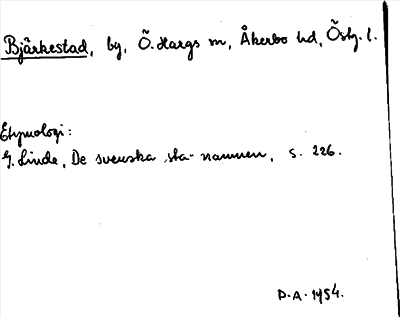 Bjärkestad, by, Ö. Hargs sn, Åkerbo hd, Östg. l.
Etymologi:
G. Linde, De svenska sta-namnen, s. 226.
D.A. 1954.